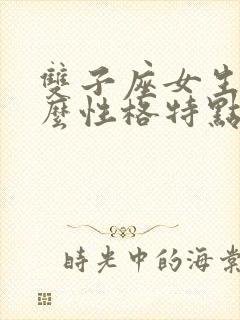 雙子座女生
麼性格特點
時光中的海棠